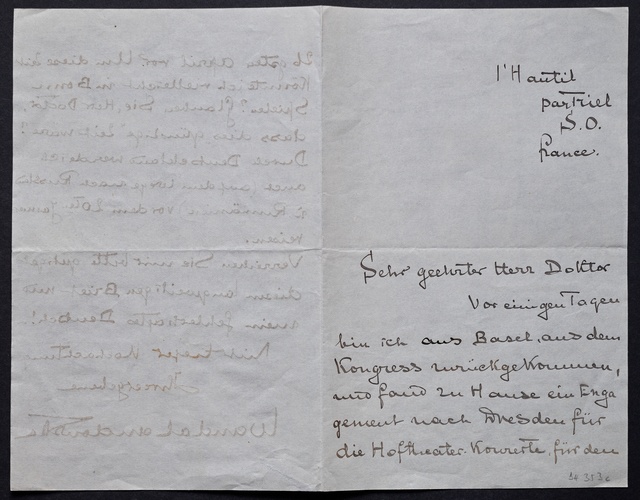 l'Hautil
par Triel
S.O.
France.
Sehr geehrter Herr Doktor
Vor einigen Tagen
bin ich aus Basel, aus dem
Kongress zurückgekommen,
und fand zu Hause ein Enga
gement nach Dresden für
die Hoftheater-Konzerte, für den
April vor. Um diese Zeit
könnte ich vielleicht in Bonn
spielen? Glauben Sie, Herr Doktor
dass dies günstige Zeit wäre?
Durch Deutschland werde ich
auch auf dem nach
Rumänien vor dem 20ten
reisen.
Verzeihen Sie mir bitte gütigst
diesen langweiligen Brief und
mein Deutsch!
Mit tiefer Hochachtung
Ihre ergebene
Wanda Landowska